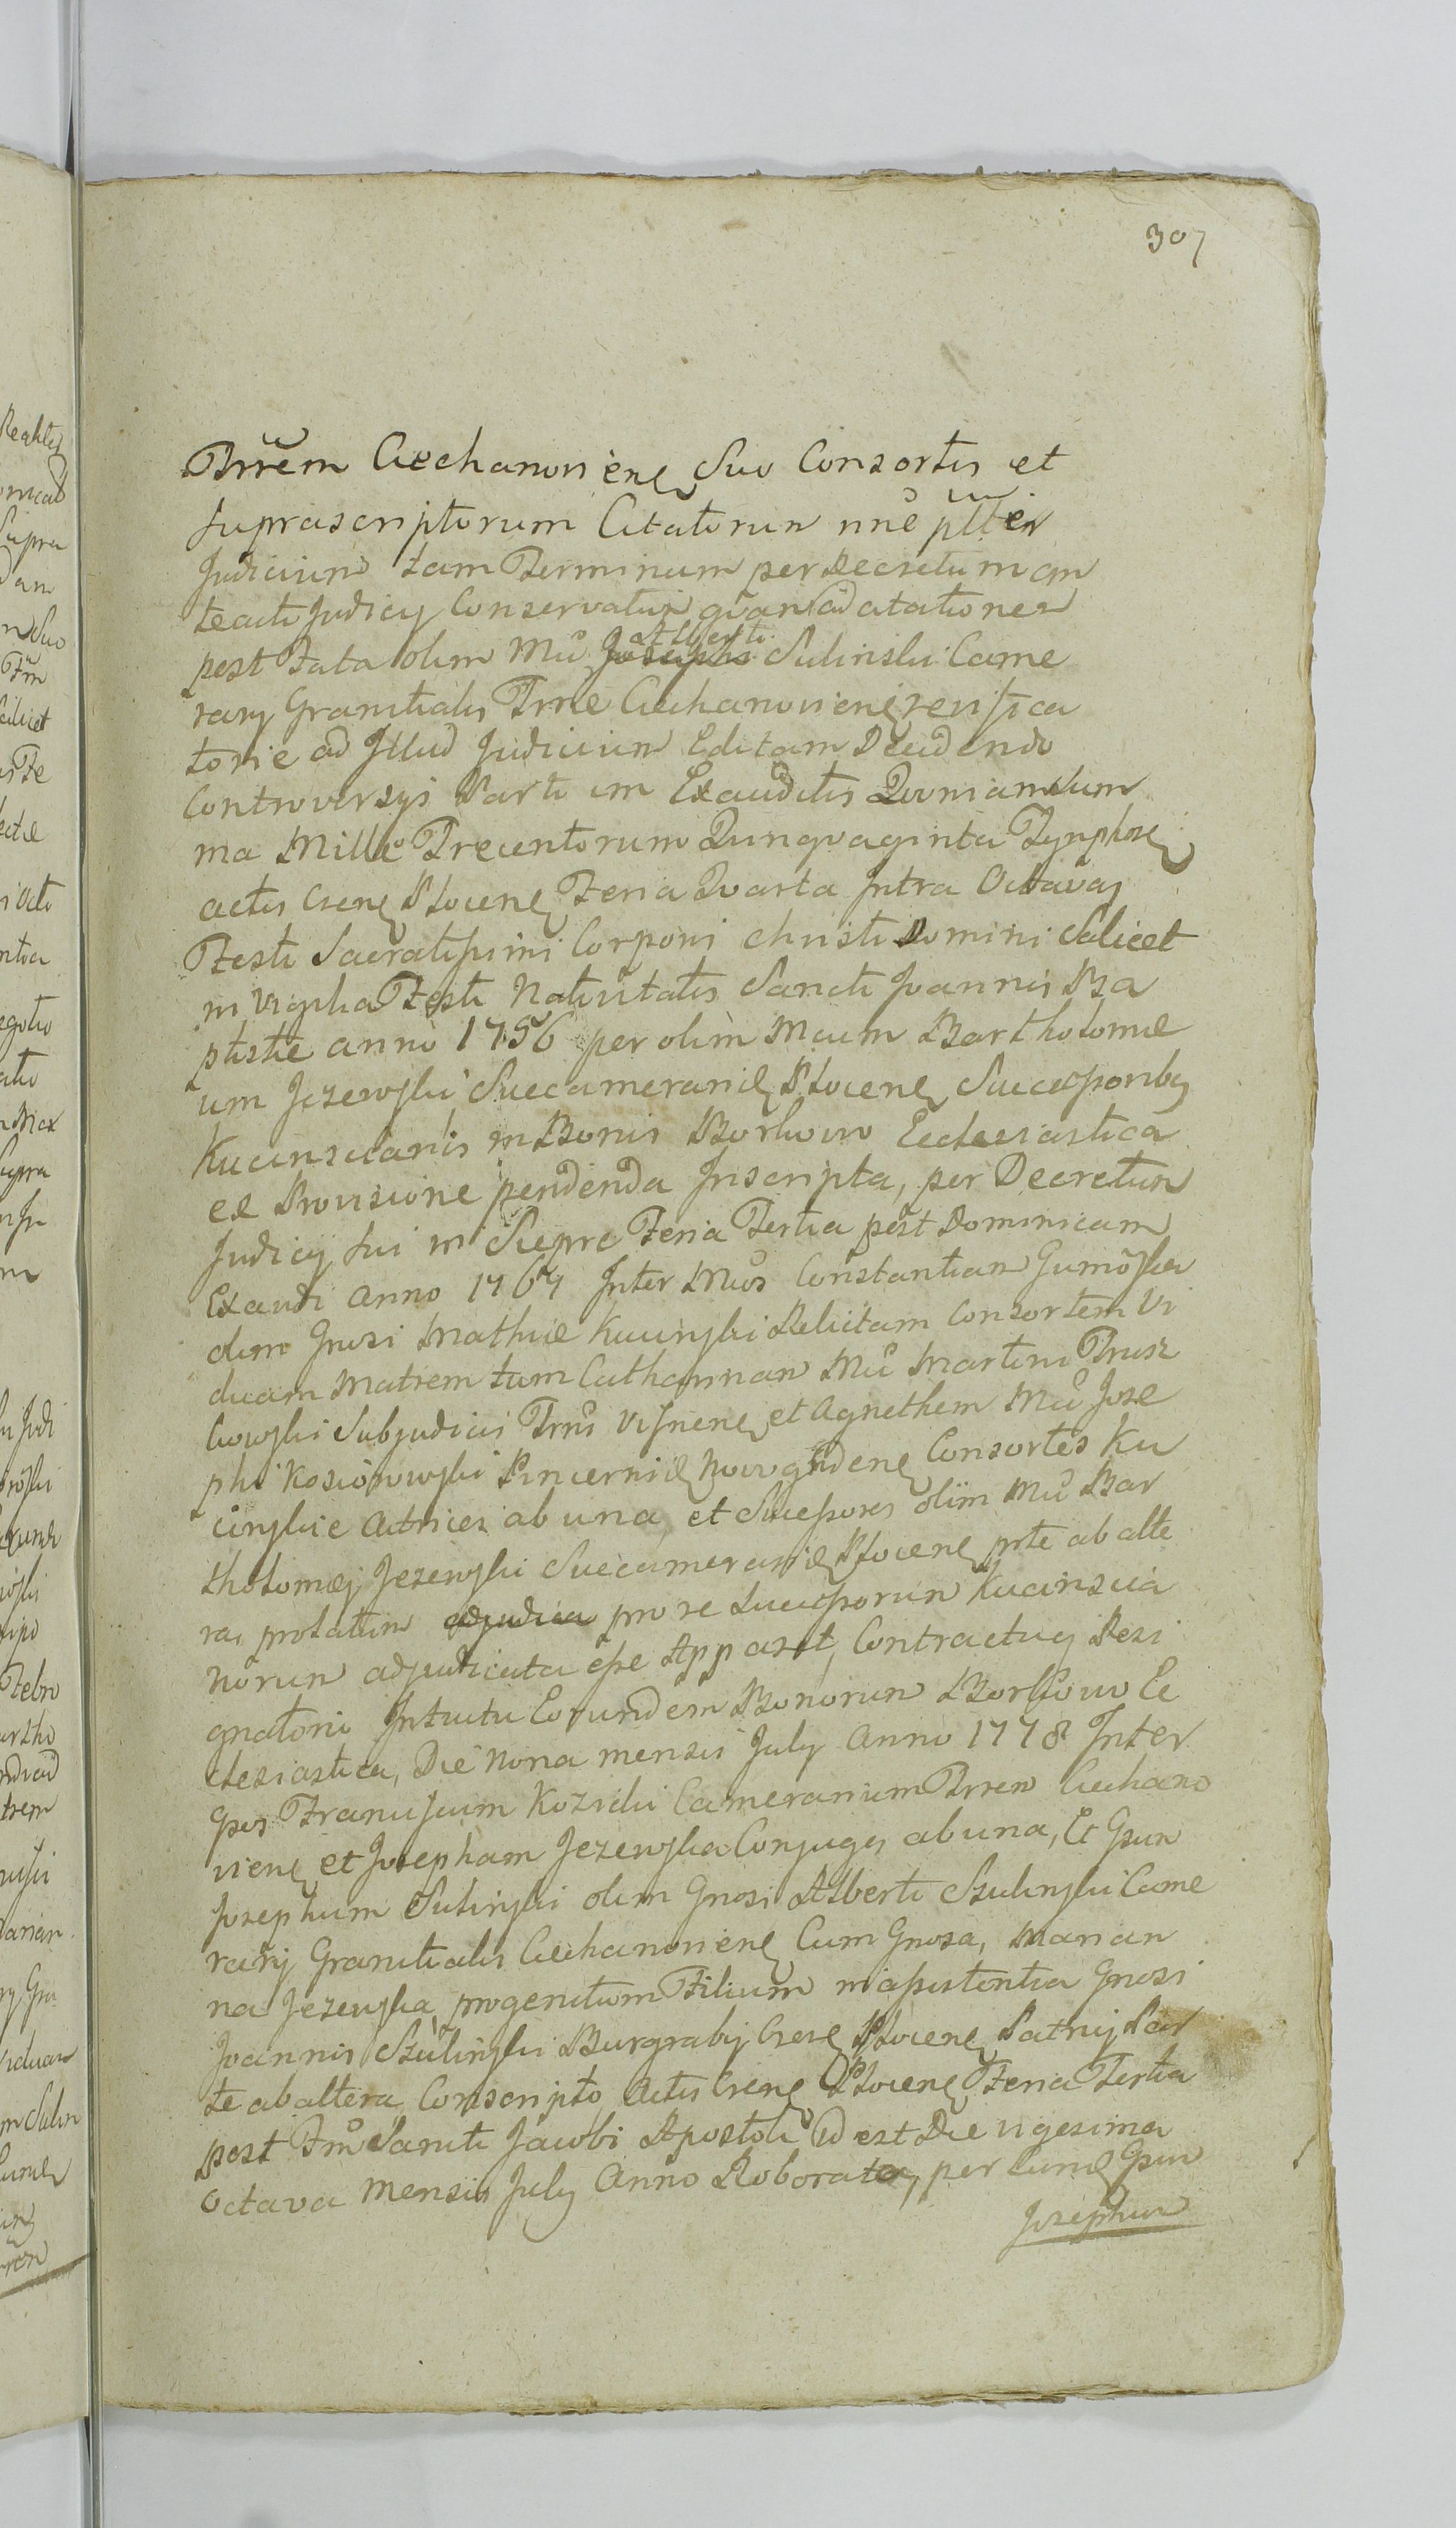 307
Trrem Ciechanoviene Suo Consortis et
suprascriptorum Citatorum nne pltter
Judicium tam Terminum per Decretum an
teacti Judicy Conservatum quam ad citationes
post Fata olim Mci Alberti Sulinski Came
rary Granitialis Trrae Ciechanoviene reussca
torie ad Illud Judicium Editam Decidendo
Controversys Parti um Exauditis Quoniam Sum
ma Mille Trecentorum Qunqvaginta Tynphor
actis Crene Plocene Feria Qvarta Intra Octavas
Festi Sacratissimi Corporis Christi Domini Scilicet
in Vigilia Festi Nativitatis Sancti Joannis Ba
ptistae anno 1756 per olim Mcum Bartholome
um Jezewski Succamerarie Plocene Successoribg
Kucinscianis in Bonis Borkowo Ecclesiastica
ex Provisione pendenda Inscripta, per Decretum
Judicy sui in Sierpc Feria Tertia post Dominicam
Exaudi Anno 1767 Inter Mcos Constantiam Gumoska
olim Gnosi Mathiae Kucinski Relictam Consortem Vi
duam Matrem tum Catharinam Mci Martini Trusz
kowski Subjudicis Trris Visnene et Agnethem Mci Jose
phi Kosiorowski Pincernie Novogrdene Consortes Ku
cinskie Actrices ab una, et Successores olim Mci Bar
tholomej Jezewski Succamerarie Plocene prte ab alte
ra, prolatum adjudica pro re Successorum Kucinscia
norum adjudicata esse Apparet, Contractus Resi
gnatorii Intuitu Eorundem Bonorum Borkowo Ec
clesiastica, Die Nona mensis July Anno 1778 Inter
Gsos Franciscum Kozicki Camerarium Trren Ciechano
viene et Josepham Jezewska Conjuges ab una, Et Gsum
Josephum Sulinski olim Gnosi Alberti Szulinski Came
rarij Granitialis Ciechanoviene Cum Gnosa, Marian
na Jezewska progenitum Filium in assistentia Gnosi
Joannis Szulinski Burgrabij Crene Plocene Patruj Par
te ab altera Conscripto Actis Crene Plocene Feria Tertia
post Fm Sancti Jacobi Apostoli id est Die vigesima
Octava Mensis July Anno Roborata, per Eund Gsum
Josephum